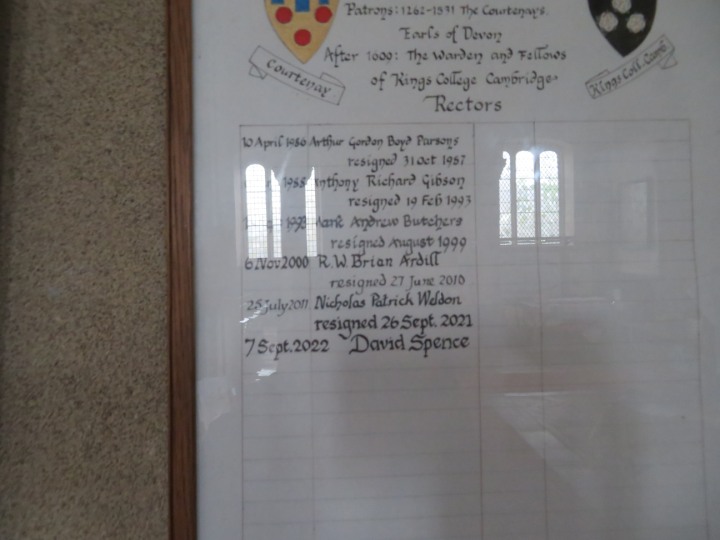 Patrons: 1262-1531 The Courtenays.
Earls of Devon
After 1609: The Warden and Fellows
of Kings College Cambridge
Courtenay
Kings Coll. Camb
Rectors
10 April 1986 Arthur Gordon Boyd Parsons
resigned 31 Oct 1987
1988 Anthony Richard Gibson
resigned 19 Feb 1993
1993 Mark Andrew Butchers
resigned August 1999
6 Nov 2000 R.W. Brian Ardill
resigned 27 June 2010
28 July 2011 Nicholas Patrick Weldon
resigned 26 Sept. 2021
7 Sept. 2022 David Spence